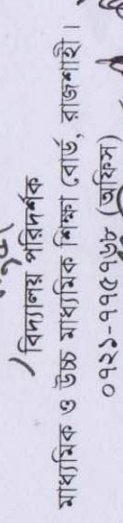 বিদ্যালয় পরিদর্শক
মাধ্যমিক ও উচ্চ মাধ্যমিক শিক্ষা বোর্ড, রাজশাহী।
০৭২১-৭৭৫৭৬৮ (অফিস)